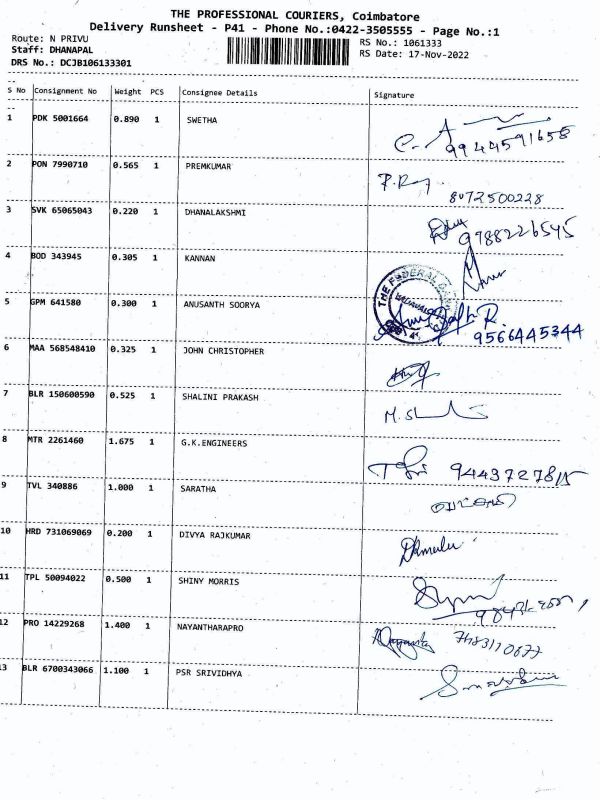 THE PROFESSIONAL COURIERS, Coimbatore
Delivery Runsheet - P41 - Phone No.:0422-3505555 - Page No.:1
Route: N PRIVU
RS No.: 1061333
Staff: DHANAPAL
RS Date: 17-Nov-2022
DRS No.: DCJB106133301
S No Consignment No Weight PCS Consignee Details Signature
1 PDK 5001664 0.890 1 SWETHA
9944591658
2 PON 7990710 0.565 1 PREMKUMAR
8072500228
3 SVK 65065043 0.220 1 DHANALAKSHMI
9788226545
4 BOD 343945 0.305 1 KANNAN
THE FEDERAL
5 GPM 641580 0.300 1 ANUSANTH SOORYA
9566445344
6 MAA 568548410 0.325 1 JOHN CHRISTOPHER
7 BLR 150600590 0.525 1 SHALINI PRAKASH
8 MTR 2261460 1.675 1 G.K.ENGINEERS
9443727815
9 TVL 340886 1.000 1 SARATHA
10 HRD 731069069 0.200 1 DIVYA RAJKUMAR
11 TPL 50094022 0.500 1 SHINY MORRIS
12 PRO 14229268 1.400 1 NAYANTHARAPRO
13 BLR 6700343066 1.100 1 PSR SRIVIDHYA